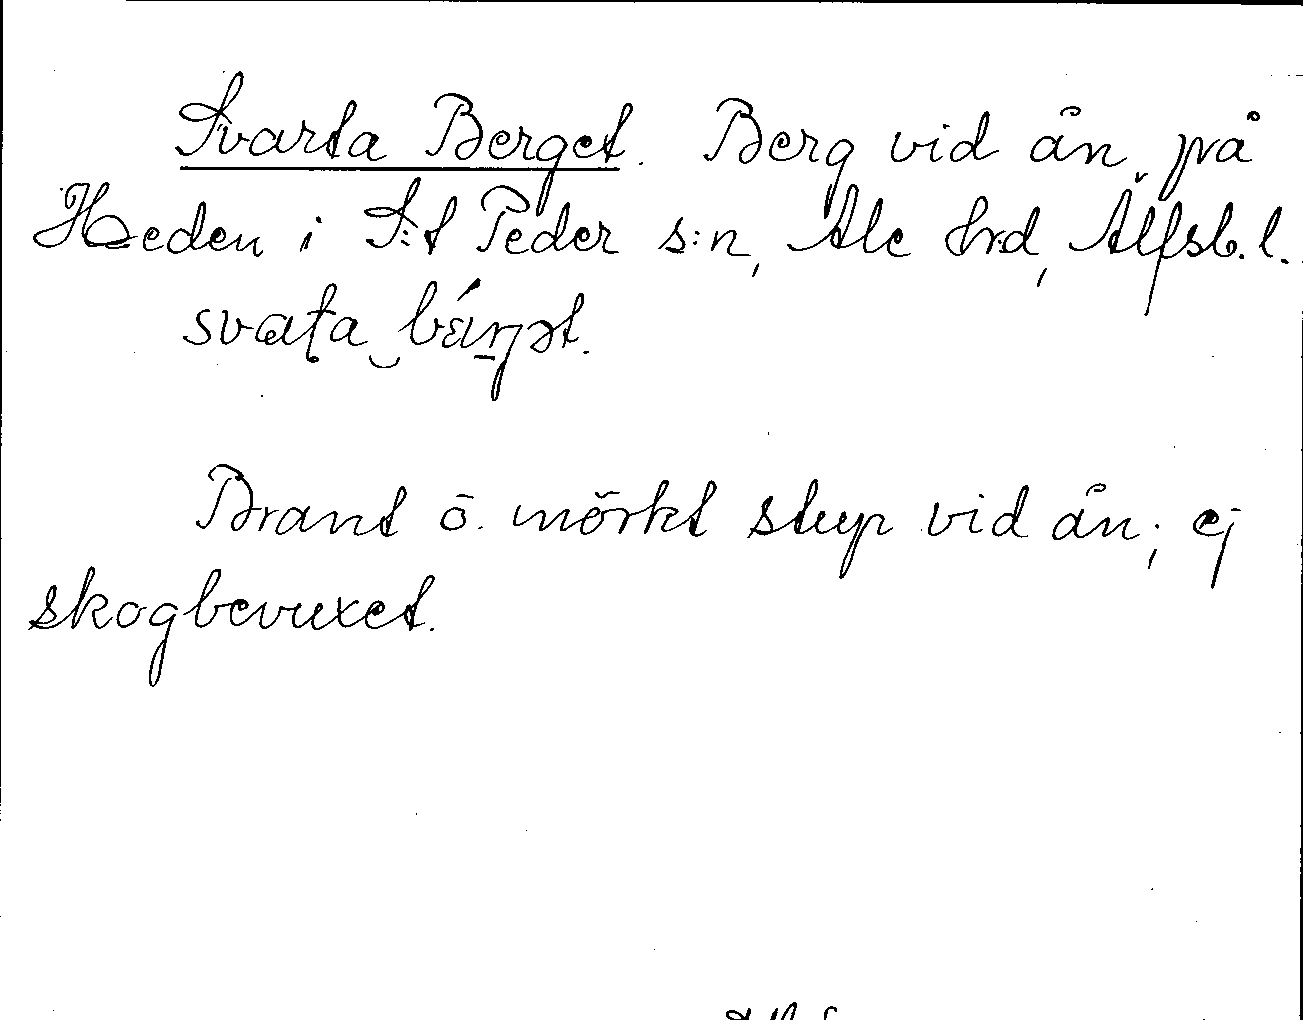 Svarta Berget. Berg vid ån på
Heden i S:t Peder s:n, Ale hrd, Älfsb. l.
Brant o. mörkt stup vid ån; ej
skogbevuxet.